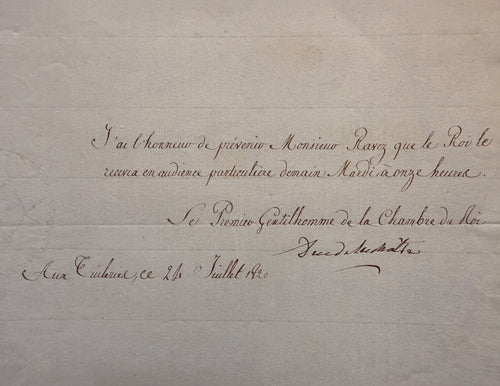 J'ai l'honneur de prévenir Monsieur Ravez que le Roi le
recevra en audience particulière demain Mardi, à onze heures.
Le Premier Gentilhomme de la Chambre du Roi
Aux Tuileries, ce 24 Juillet 1820